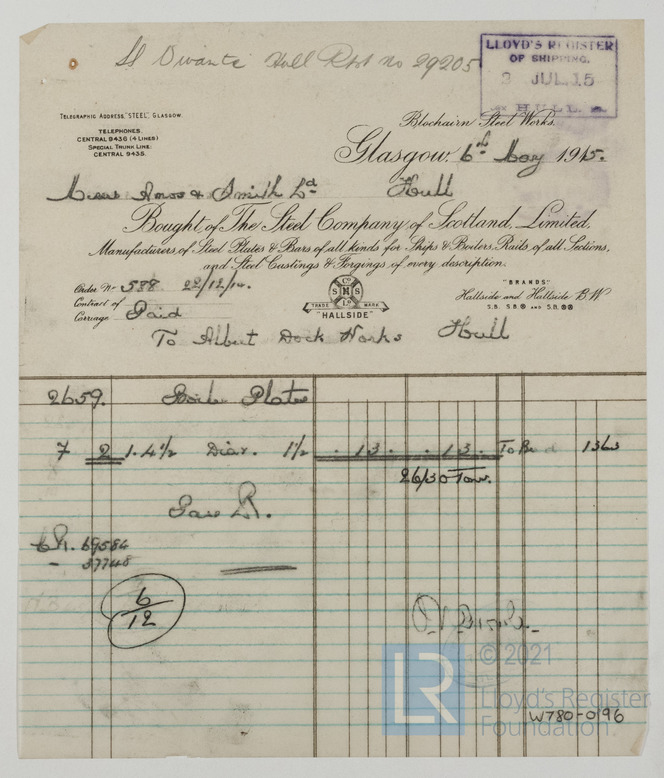 Hull Rpt no 29205
LLOYD'S REGISTER
OF SHIPPING.
3 JUL. 15
HULL
TELEGRAPHIC ADDRESS, "STEEL", GLASGOW.
TELEPHONES.
CENTRAL 9436 (4 LINES)
SPECIAL TRUNK LINE.
CENTRAL 9435.
Blochairn Steel Works.
Glasgow, 6th May 1915.
Messrs Amos & Smith Ld Hull
Bought of The Steel Company of Scotland, Limited,
Manufacturers of Steel Plates & Bars of all kinds for Ships & Boilers, Rails of all Sections,
and Steel Castings & Forgings of every description.
Order No 588 22/12/14.
Contract of
Carriage Paid
SCoS Ld
TRADE MARK
"HALLSIDE"
"BRANDS"
Hallside and Hallside B.W
To Albert Dock Works Hull
2659. Boiler Plates
7 2 1.4½ Diar. 1½ . 13 . . 13 . 1363
26/30 Tons.
69584
37748
6/12
LR
© 2021
Lloyd's Register
Foundation.
W780-0196